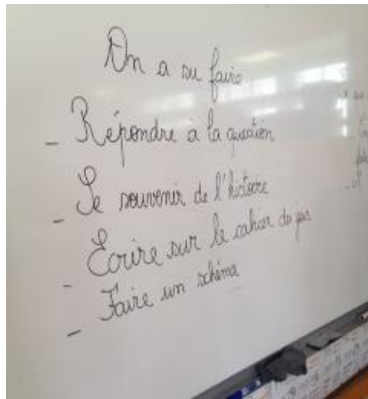 On a su faire.
- Répondre à la question
- Se souvenir de l'histoire
- Ecrire sur le cahier du jour
- Faire un schéma